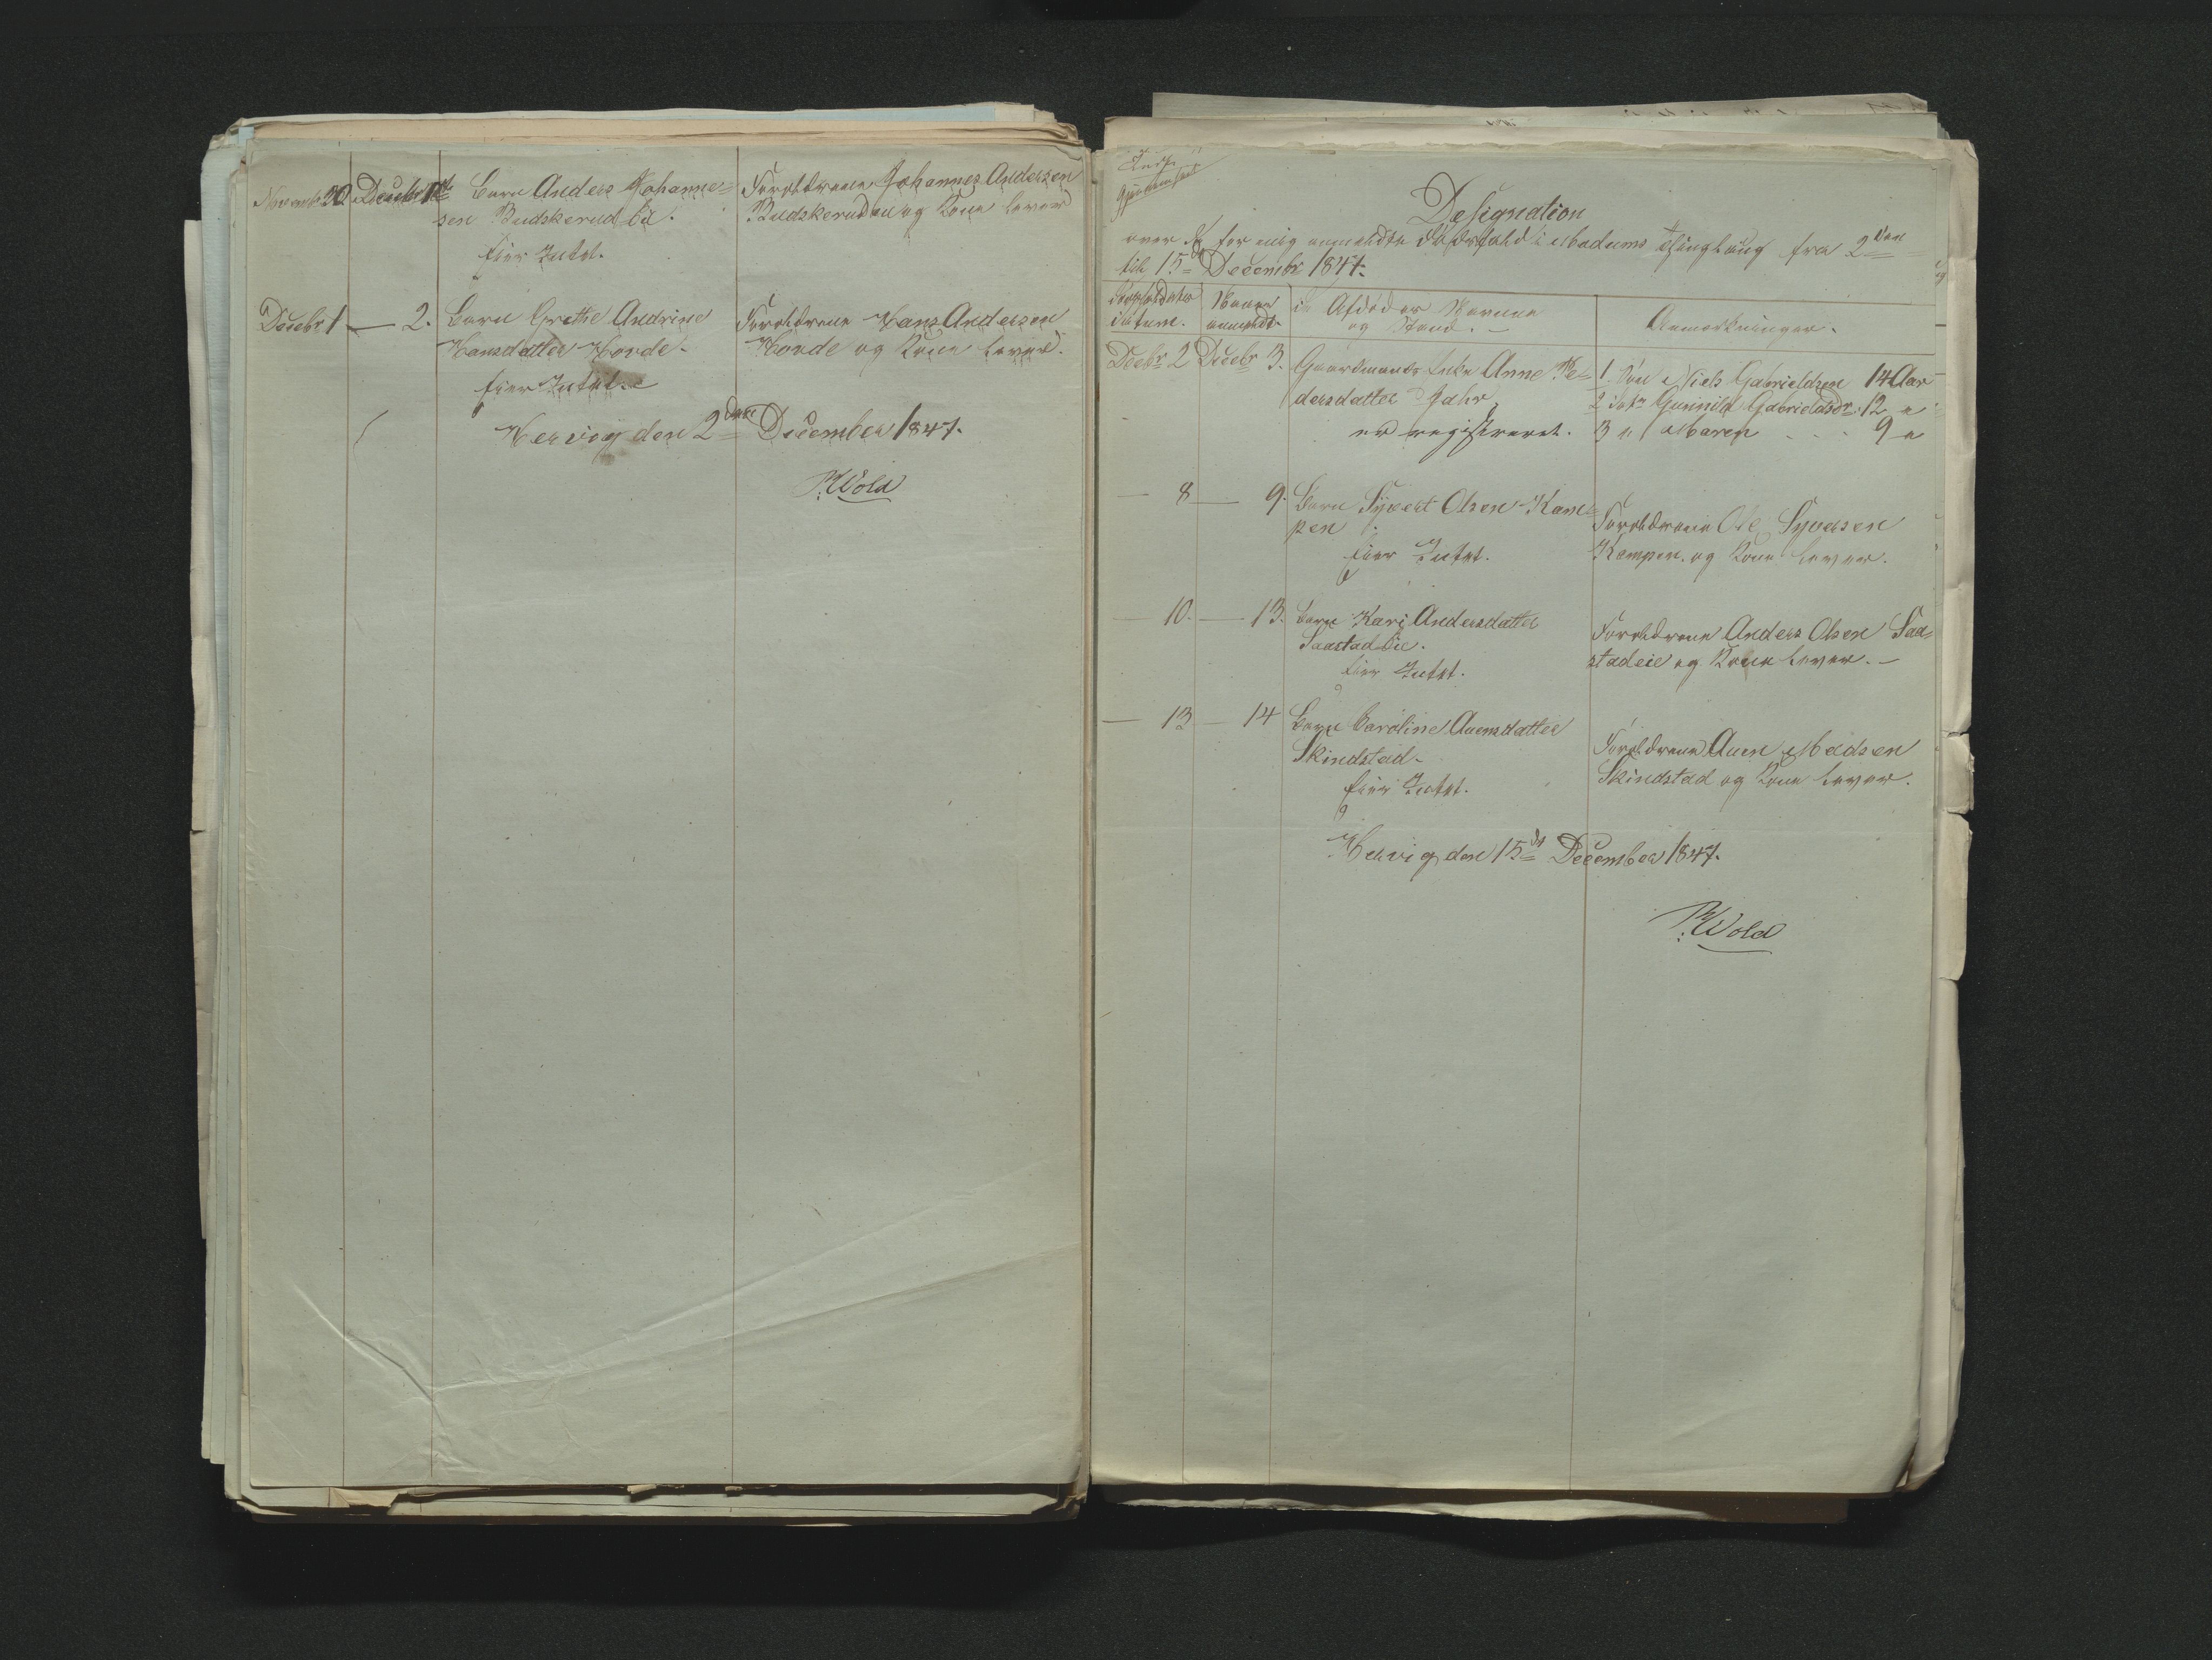 Novemb. 30 Decebr 1ste Barn Anders Johanne=
sen Budskerud Eie.
Eier Intet.
Forældrene Johannes Andersen
Budskerudeie og Kone lever
Decebr 1 — 2. Barn Grethe Andrine
Hansdatter Hovde.
Eier Intet.
Forældrene Hans Andersen
Hovde og Kone lever.
Hervig den 2den December 1847.
P. Wold
Designation
over de for mig anmeldte Dødsfald i Modums Thinglaug fra 2den
til 15de Decembr 1847.
Dødsfaldets
Datum.
Naar
anmeldt.
de Afdødes Navne
og Stand. —
Anmerkninger.
Decbr 2 Decebr 3. Gaardmands Enke Anne Pe=
dersdatter Jahr,
er registreret.
1. Søn Niels Gabrielsen 14 Aar
2 Datr Gunnild Gabrielsdr. 12 "
3 " Maren . . . 9 "
— 8 — 9. Barn Syvert Olsen Kam=
pen
Eier Intet.
Forældrene Ole Syversen
Kampen og Kone lever.
— 10. — 13. Barn Kari Andersdatter
Saastad Eie.
Eier Intet.
Forældrene Anders Olsen Saa=
stadeie og Kone lever. —
— 13 — 14 Barn Caroline Auensdatter
Skindstad.
Eier Intet.
Forældrene Auen Madsen
Skindstad og Kone lever.
Hervig den 15de December 1847.
P. Wold